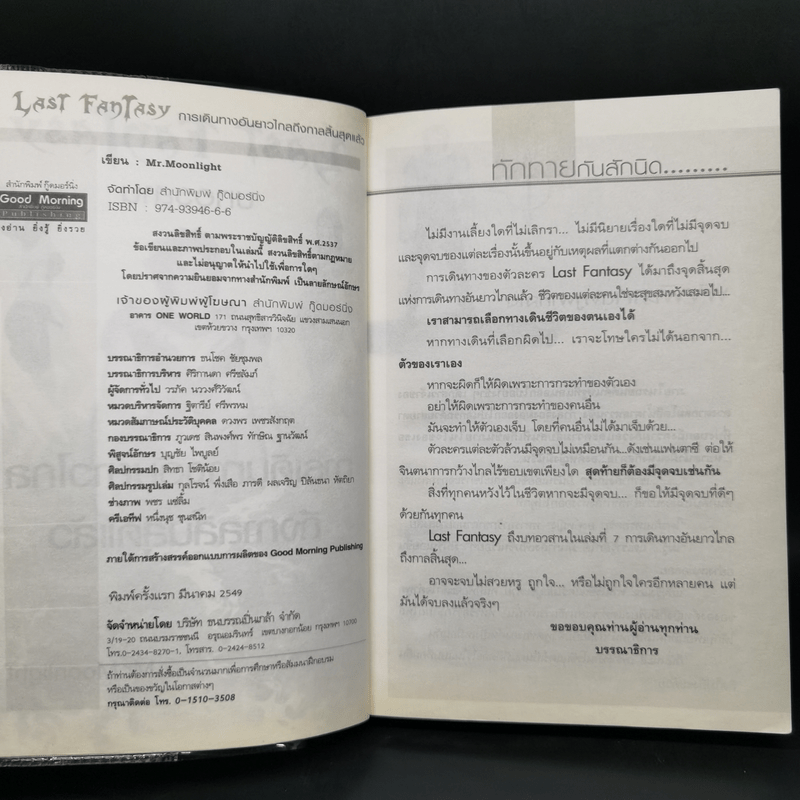 LAST FANTASY การเดินทางอันยาวไกลถึงกาลสิ้นสุดแล้ว
เขียน : Mr.Moonlight
สำนักพิมพ์ กู๊ดมอร์นิ่ง
Good Morning
Publishing
ยิ่งอ่าน ยิ่งรู้ ยิ่งรวย
จัดทำโดย สำนักพิมพ์ กู๊ดมอร์นิ่ง
ISBN : 974-93946-6-6
สงวนลิขสิทธิ์ ตามพระราชบัญญัติลิขสิทธิ์ พ.ศ.2537
ข้อเขียนและภาพประกอบในเล่มนี้ สงวนลิขสิทธิ์ตามกฎหมาย
และไม่อนุญาตให้นำไปใช้เพื่อการใดๆ
โดยปราศจากความยินยอมจากทางสำนักพิมพ์ เป็นลายลักษณ์อักษร
เจ้าของผู้พิมพ์ผู้โฆษณา สำนักพิมพ์ กู๊ดมอร์นิ่ง
อาคาร ONE WORLD 171 ถนนสุทธิสารวินิจฉัย แขวงสามเสนนอก
เขตห้วยขวาง กรุงเทพฯ 10320
บรรณาธิการอำนวยการ ธนโชค ชัยชุมพล
บรรณาธิการบริหาร ศิริกานดา ศรีชลัมภ์
ผู้จัดการทั่วไป วรภัค นววงศ์วิวัฒน์
หมวดบริหารจัดการ ฐิตารีย์ ศรีพรหม
หมวดสัมภาษณ์ประวัติบุคคล ดวงพร เพชรสังกฤต
กองบรรณาธิการ ภูวเดช สินพงศ์พร ทักษิณ ฐานวัฒน์
พิสูจน์อักษร บุญชัย ไพบูลย์
ศิลปกรรมปก สิทธา โชติน้อย
ศิลปกรรมรูปเล่ม กุลโรจน์ พึ่งเสือ ภารดี ผลเจริญ ปิลันธนา หัตถิยา
ช่างภาพ พชร แซ่ลิ้ม
ครีเอทีฟ หนึ่งนุช ชูนสนิท
ภายใต้การสร้างสรรค์ออกแบบการผลิตของ Good Morning Publishing
พิมพ์ครั้งแรก มีนาคม 2549
จัดจำหน่ายโดย บริษัท ธนบรรณปิ่นเกล้า จำกัด
3/19-20 ถนนบรมราชชนนี อรุณอมรินทร์ เขตบางกอกน้อย กรุงเทพฯ 10700
โทร.0-2434-8270-1, โทรสาร. 0-2424-8512
ถ้าท่านต้องการสั่งซื้อเป็นจำนวนมากเพื่อการศึกษาหรือสัมมนาฝึกอบรม
หรือเป็นของขวัญในโอกาสต่างๆ
กรุณาติดต่อ โทร. 0-1510-3508
ทักทายกันสักนิด.........
ไม่มีงานเลี้ยงใดที่ไม่เลิกรา... ไม่มีนิยายเรื่องใดที่ไม่มีจุดจบ
และจุดจบของแต่ละเรื่องนั้นขึ้นอยู่กับเหตุผลที่แตกต่างกันออกไป
การเดินทางของตัวละคร Last Fantasy ได้มาถึงจุดสิ้นสุด
แห่งการเดินทางอันยาวไกลแล้ว ชีวิตของแต่ละคนใช่จะสุขสมหวังเสมอไป...
เราสามารถเลือกทางเดินชีวิตของตนเองได้
หากทางเดินที่เลือกผิดไป... เราจะโทษใครไม่ได้นอกจาก...
ตัวของเราเอง
หากจะผิดก็ให้ผิดเพราะการกระทำของตัวเอง
อย่าให้ผิดเพราะการกระทำของคนอื่น
มันจะทำให้ตัวเองเจ็บ โดยที่คนอื่นไม่ได้มาเจ็บด้วย...
ตัวละครแต่ละตัวล้วนมีจุดจบไม่เหมือนกัน...ดังเช่นแฟนตาซี ต่อให้
จินตนาการกว้างไกลไร้ขอบเขตเพียงใด สุดท้ายก็ต้องมีจุดจบเช่นกัน
สิ่งที่ทุกคนหวังไว้ในชีวิตหากจะมีจุดจบ... ก็ขอให้มีจุดจบที่ดีๆ
ด้วยกันทุกคน
Last Fantasy ถึงบทอวสานในเล่มที่ 7 การเดินทางอันยาวไกล
ถึงกาลสิ้นสุด...
อาจจะจบไม่สวยหรู ถูกใจ... หรือไม่ถูกใจใครอีกหลายคน แต่
มันได้จบลงแล้วจริงๆ
ขอขอบคุณท่านผู้อ่านทุกท่าน
บรรณาธิการ